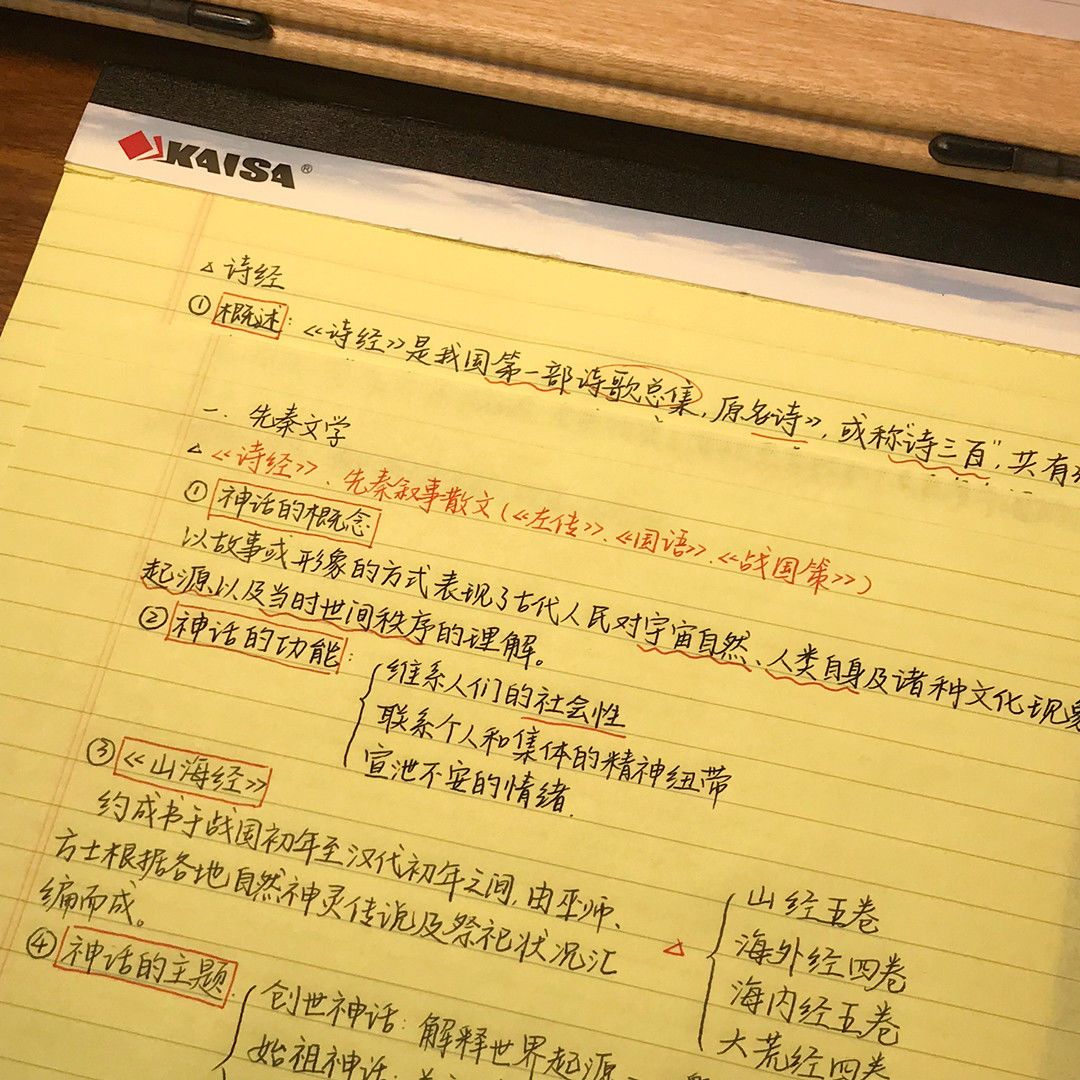 KAISA®
△ 诗经
① 概述：《诗经》是我国第一部诗歌总集，原名诗》，或称"诗三百"，共有
一、先秦文学
△《诗经》、先秦叙事散文（《左传》、《国语》、《战国策》）
① 神话的概念
以故事或形象的方式表现了古代人民对宇宙自然、人类自身及诸种文化现象
起源以及当时世间秩序的理解。
② 神话的功能：
维系人们的社会性
联系个人和集体的精神纽带
宣泄不安的情绪.
③《山海经》
约成书于战国初年至汉代初年之间，由巫师、
方士根据各地自然神灵传说及祭祀状况汇
编而成。
△
山经五卷
海外经四卷
海内经五卷
大荒经四卷
④ 神话的主题
创世神话：解释世界起源
始祖神话：